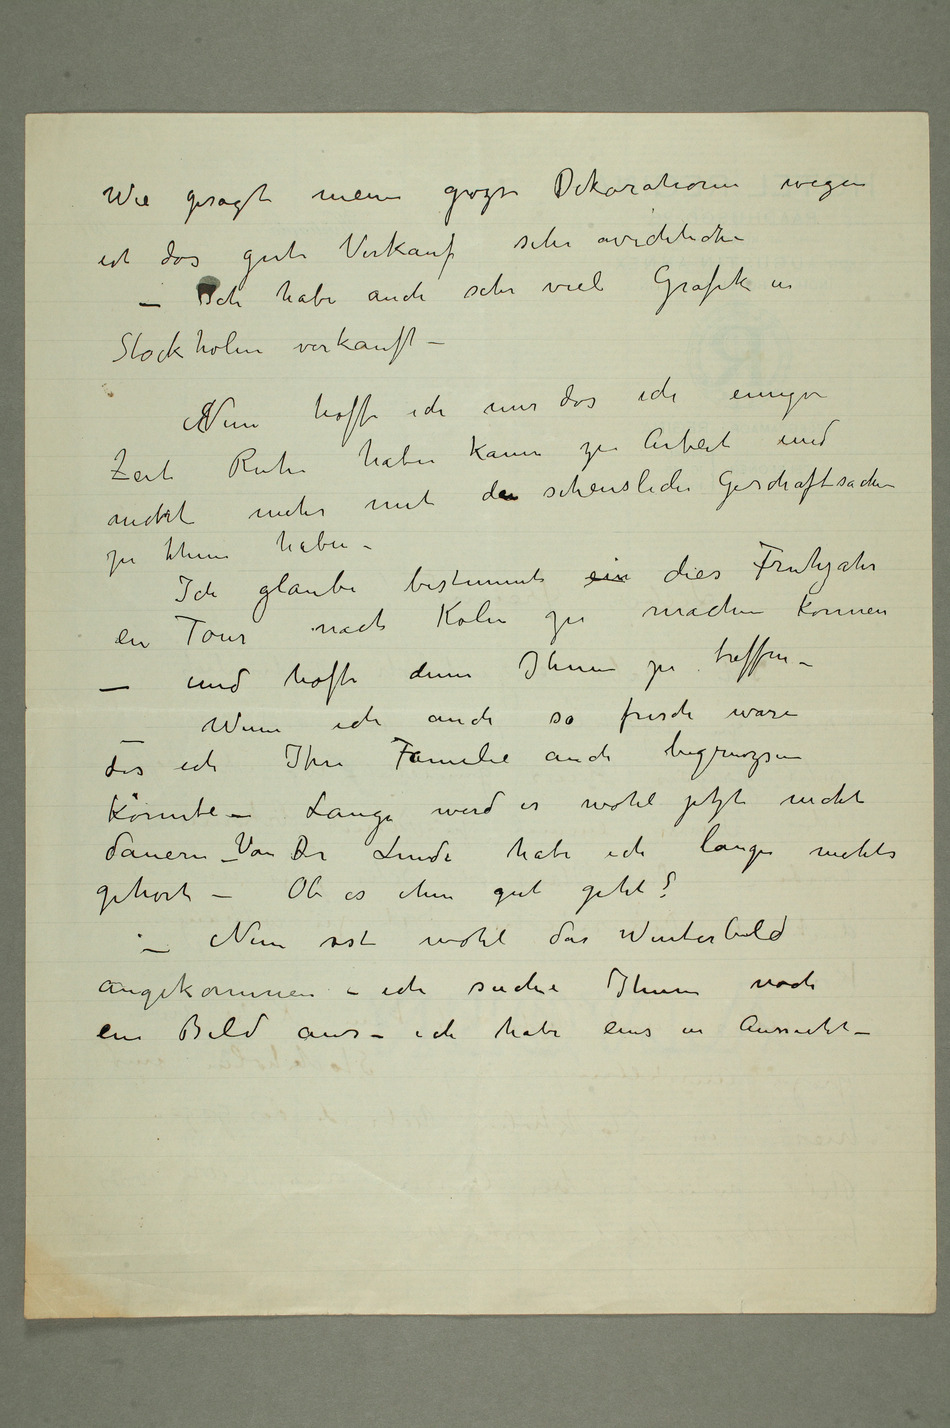 Wie gesagt meine grozse Dekorationen wegen
ist das gute Verkauf sehr
– Ich habe auch sehr viel Grafik in
Stockholm verkauft –
Nun hoffe ich nur das ich einige
Zeit Ruhe haben kann zu Arbeit und
nicht mehr mit den scheuslichen Geschäftsachen
zu thun haben –
Ich glaube bestimmt ein dies Fruhjahr
en Tour nach Köln zu machen können
– und hoffe denn Ihnen zu treffen –
– Wenn ich auch so frisch ware
das ich Ihre Familie auch begruszen
könnte – Lange werd es wohl jetzt nicht
dauern – Von Dr Linde habe ich lange nichts
gehört – Ob es ihm gut geht?
– Nun ist wohl das Winterbild
angekommen – ich suche Ihnen noch
ein Bild aus – ich habe eins in Aussicht –